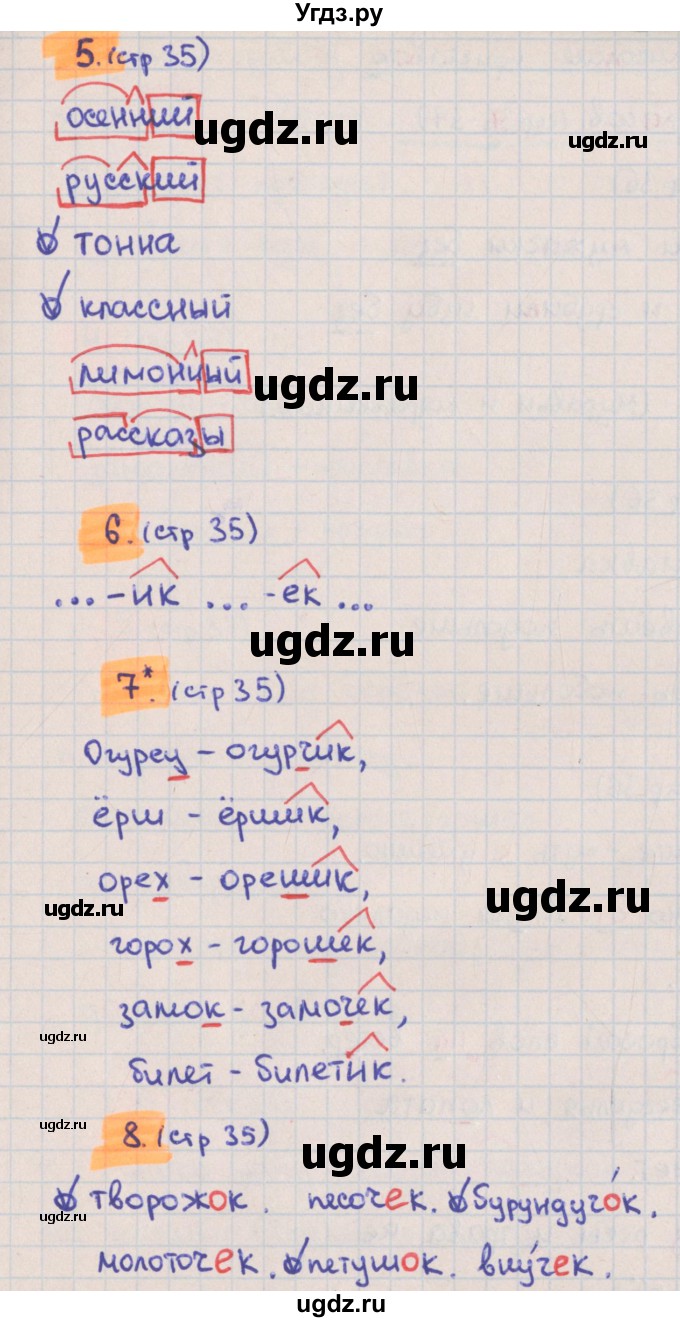 Угдз.ру
5. (стр 35)
осенний
ugdz.ru
ugdz.ru
русский
тонна
классный
лимонный
ugdz.ru
рассказы
6. (стр 35)
... -ик ... -ек ...
ugdz.ru
7*. (стр 35)
Огурец - огурчик,
ёрш - ёршик,
орех - орешик,
ugdz.ru
ugdz.ru
горох - горошек,
замок - замочек,
ugdz.ru
билет - билетик.
ugdz.ru
8. (стр 35)
ugdz.ru
творожок. песочек. бурундучо́к.
ugdz.ru
молоточек. петушок. вну́чек.
ugdz.ru